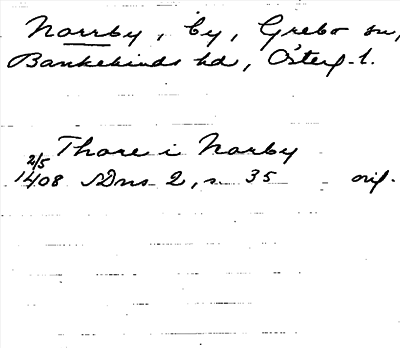 Norrby, by, Grebo sn,
Bankekinds hd, Österg. l.
Thore i Norby
2/5
1408 SDns 2, s. 35 orig.